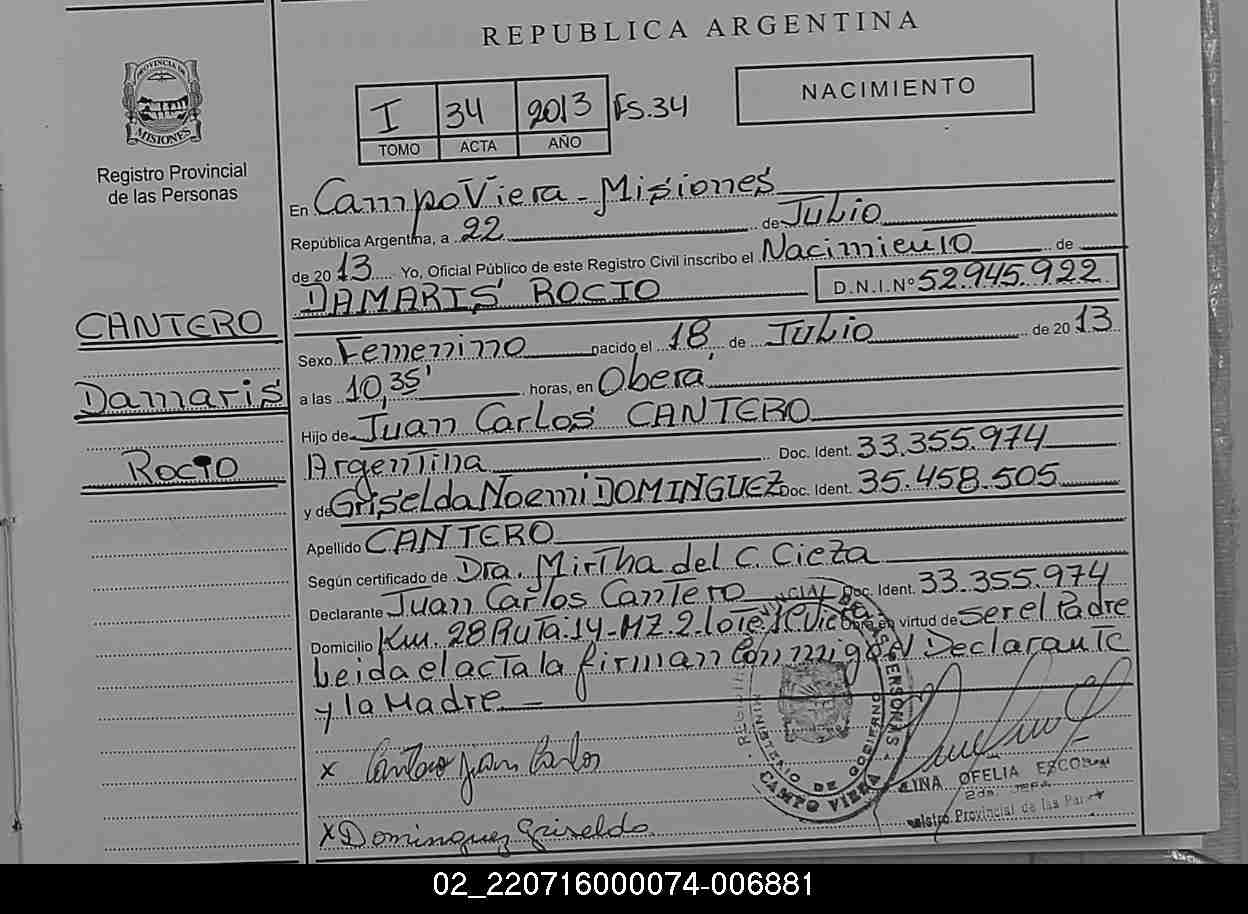 REPUBLICA ARGENTINA
PROVINCIA DE
MISIONES
Registro Provincial
de las Personas
I 34 2013 Fs.34
TOMO ACTA AÑO
NACIMIENTO
En Campo Viera - Misiones
República Argentina, a 22 de Julio
de 2013 Yo, Oficial Público de este Registro Civil inscribo el Nacimiento de
DAMARIS ROCIO D.N.I.Nº 52.945.922
CANTERO
Damaris
Rocio
Sexo Femenino nacido el 18 de Julio de 2013
a las 10,35' horas, en Oberá
Hijo de Juan Carlos CANTERO
Argentina Doc. Ident. 33.355.974
y de Griselda Noemi DOMINGUEZ Doc. Ident. 35.458.505
Apellido CANTERO
Según certificado de Dra. Mirtha del C. Cieza
Declarante Juan Carlos Cantero Doc. Ident. 33.355.974
Domicilio Km. 28 Ruta 14-MZ.2-lote Obra en virtud de ser el Padre
Leida el acta la firman Conmigo el Declarante
y la Madre
x Cantero Juan Carlos
x Dominguez Griselda
MINISTERIO DE GOBIERNO
CAMPO VIERA
OFELIA
Provincial de las
02_220716000074-006881